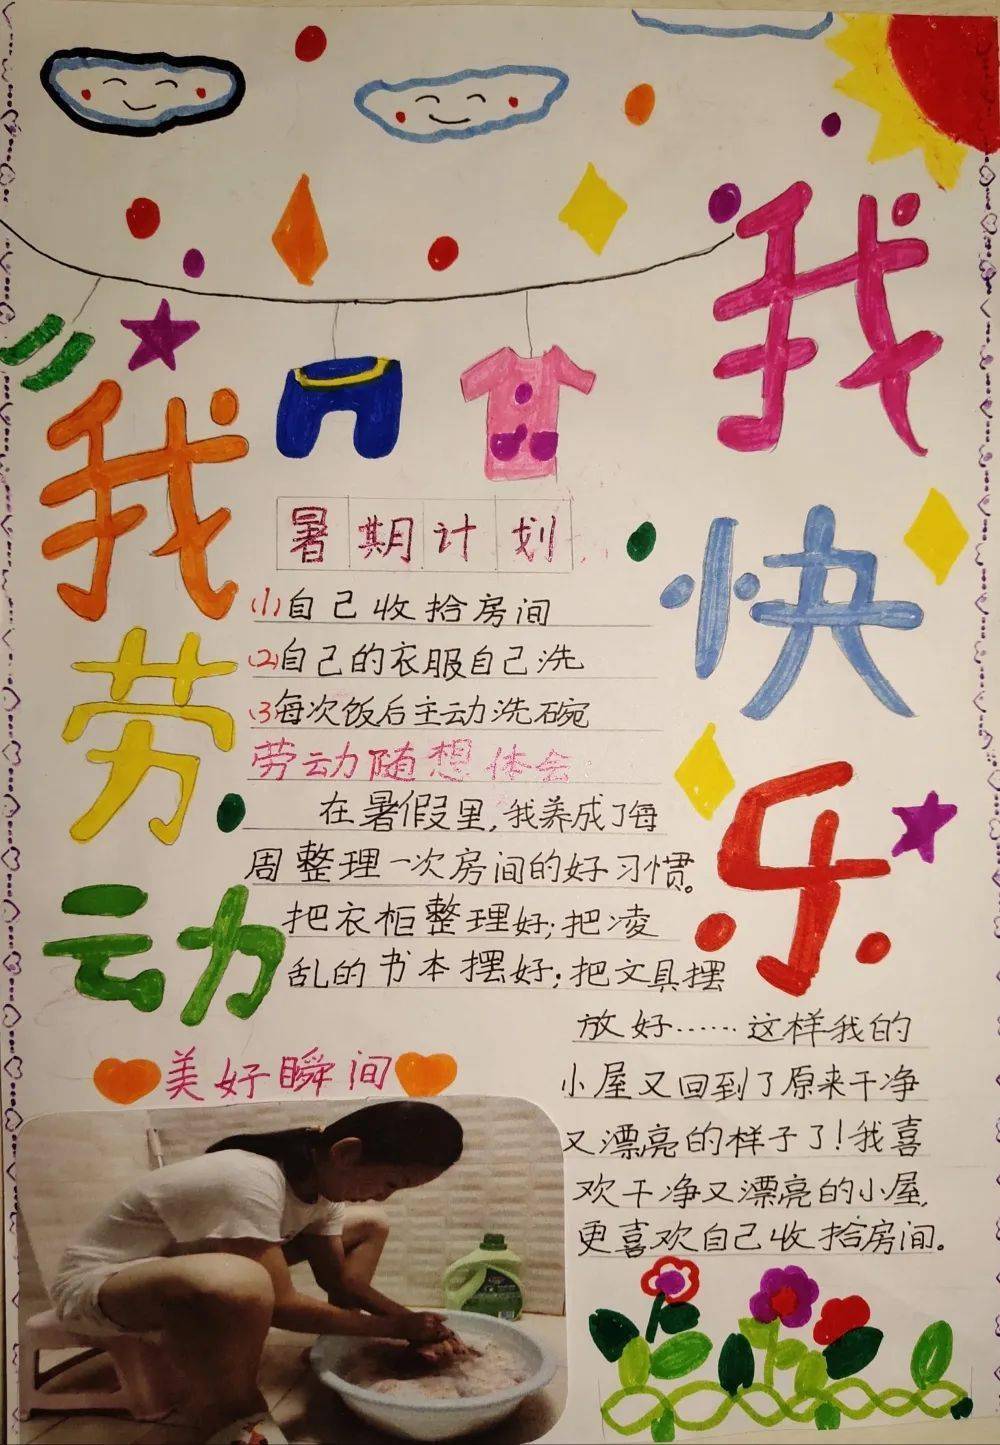 我劳动
我快乐
暑期计划
(1)自己收拾房间
(2)自己的衣服自己洗
(3)每次饭后主动洗碗
劳动随想体会
在暑假里,我养成了每
周整理一次房间的好习惯。
把衣柜整理好;把凌
乱的书本摆好;把文具摆
放好……这样我的
小屋又回到了原来干净
又漂亮的样子了!我喜
欢干净又漂亮的小屋,
更喜欢自己收拾房间。
美好瞬间